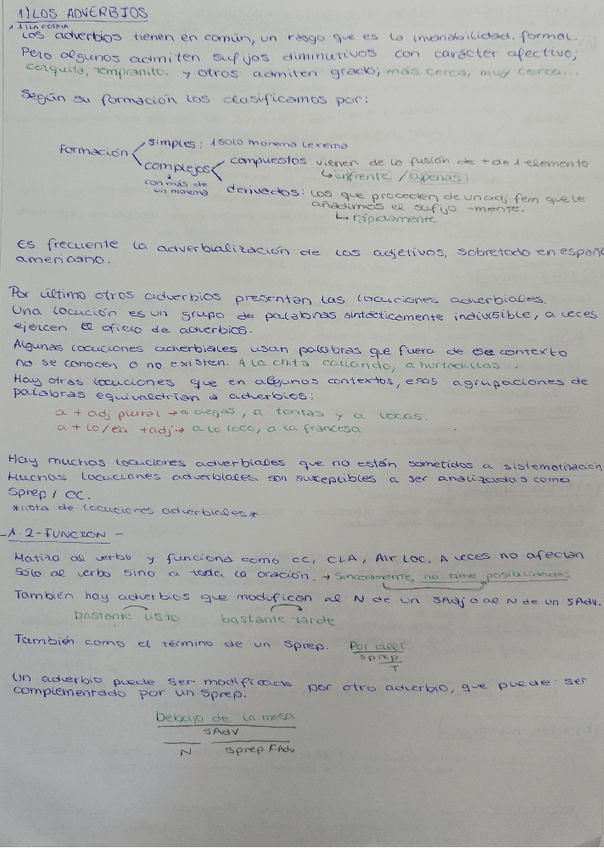 1) LOS ADVERBIOS
1.1 LA FORMA
Los adverbios tienen en común, un rasgo que es la invariabilidad formal.
Pero algunos admiten sufijos diminutivos con carácter afectivo;
cerquita, tempranito. y otros admiten grado; más cerca, muy cerca...
Según su formación los clasificamos por:
simples: 1 solo morema lexema
formación
complejos
compuestos vienen de la fusión de + de 1 elemento
con más de
un morema
enfrente / apenas
derivados: Los que proceden de un adj fem que le
añadimos el sufijo -mente.
rápidamente
Es frecuente la adverbialización de los adjetivos, sobretodo en españo
americano.
Por último otros adverbios presentan las locuciones adverbiales.
Una locución es un grupo de palabras sintácticamente indivisible, a veces
ejercen el oficio de adverbios.
Algunas locuciones adverbiales usan palabras que fuera de ese contexto
no se conocen o no existen. A la chita callando, a hurtadillas...
Hay otras locuciones que en algunos contextos, esas agrupaciones de
palabras equivaldrían a adverbios:
a + adj plural → a ciegas, a tontas y a locas.
a + lo/la + adj → a lo loco, a la francesa
Hay muchas locuciones adverbiales que no están sometidas a sistematización
Muchas locuciones adverbiales son susceptibles a ser analizadas como
Sprep / CC.
*lista de locuciones adverbiales*
-1.2-FUNCION-
Matiza al verbo y funciona como CC, CLA, Air Loc. A veces no afectan
Sólo al verbo sino a toda la oración. → Sinceramente, no tiene posibilidades
También hay adverbios que modifican al N de un SAdj o al N de un SAdv.
bastante listo bastante tarde
También como el término de un Sprep. Por allí
Sprep
T
Un adverbio puede ser modificado por otro adverbio, que puede ser
complementado por un Sprep.
Debajo de la mesa
SAdv
N Sprep FAdv